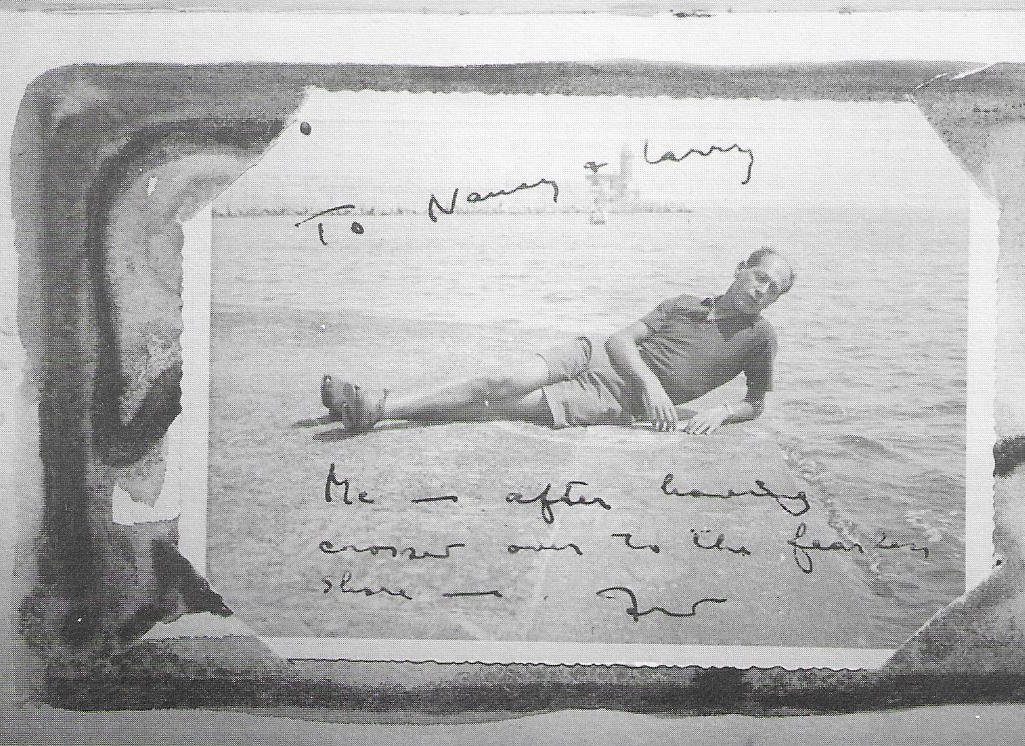 To Nancy & Larry
Me — after having
crossed over to the farther
shore —